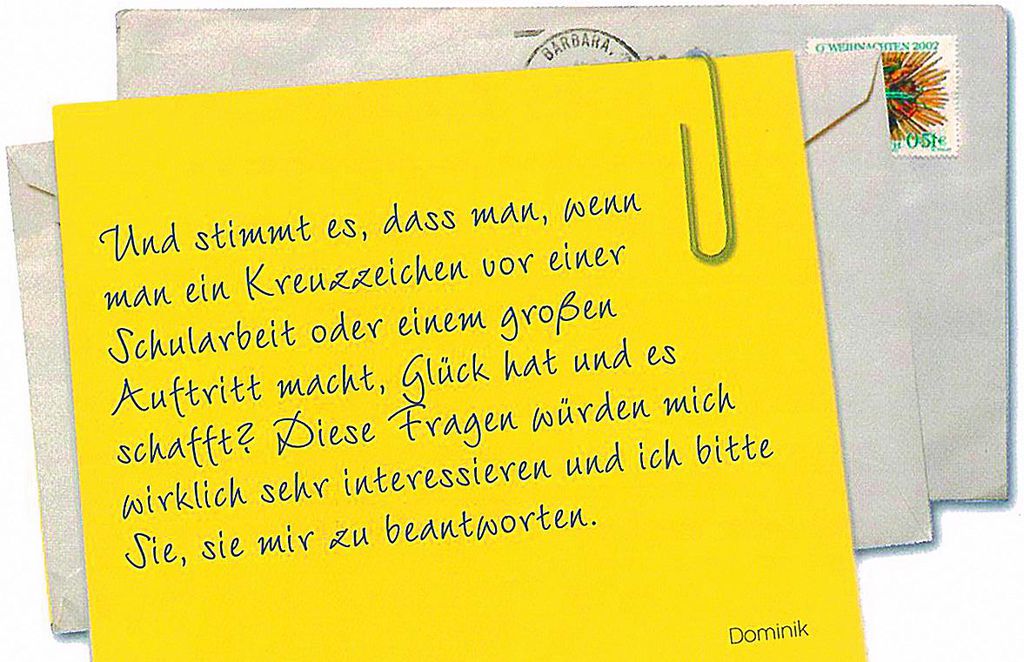 BARBARA,
O WEIHNACHTEN 2002
0.51€
Und stimmt es, dass man, wenn
man ein Kreuzzeichen vor einer
Schularbeit oder einem großen
Auftritt macht, Glück hat und es
schafft? Diese Fragen würden mich
wirklich sehr interessieren und ich bitte
Sie, sie mir zu beantworten.
Dominik